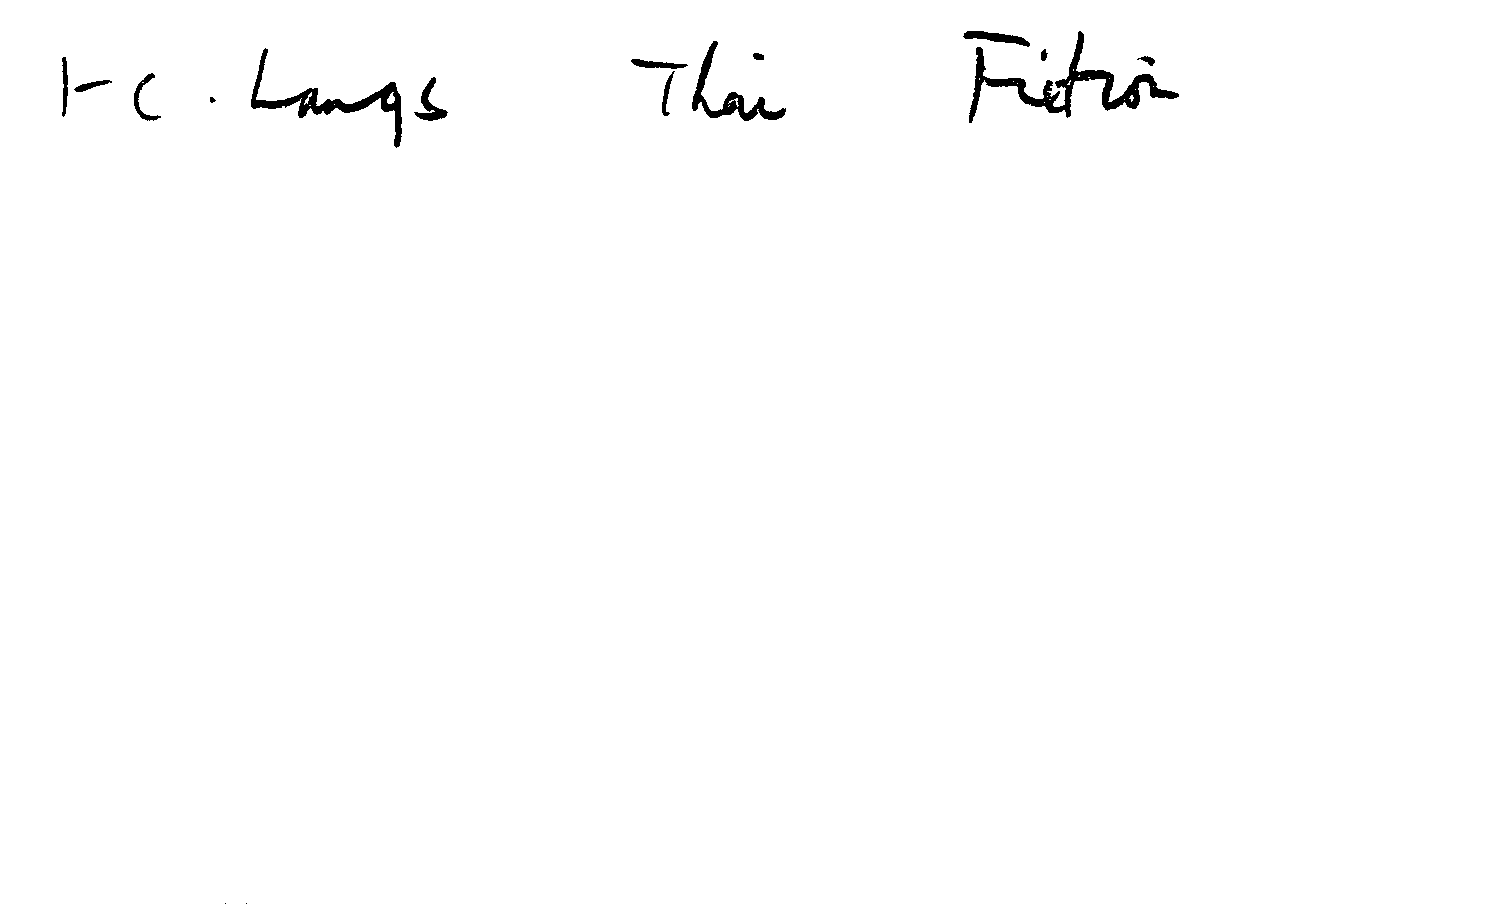 FC. Langs Thai Fiction